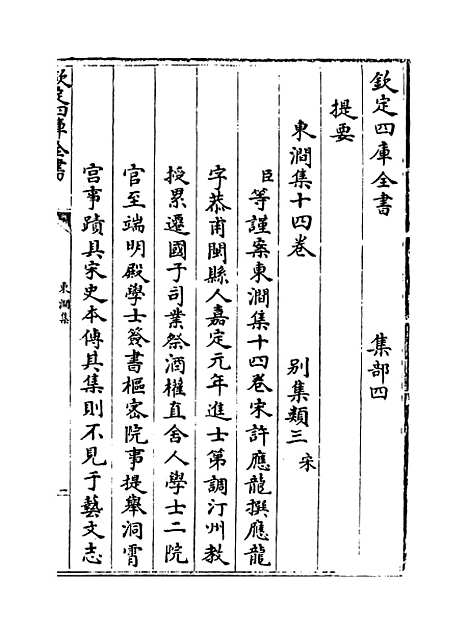 欽定四庫全書　　　集部四
提要
東澗集十四卷　　　別集類三宋
臣等謹案東澗集十四卷宋許應龍撰應龍
字恭甫閩縣人嘉定元年進士第調汀州教
授累遷國子司業祭酒權直舍人學士二院
官至端明殿學士簽書樞密院事提舉洞霄
宫事蹟具宋史本傳其集則不見于藝文志
欽定四庫全書
東澗集
二